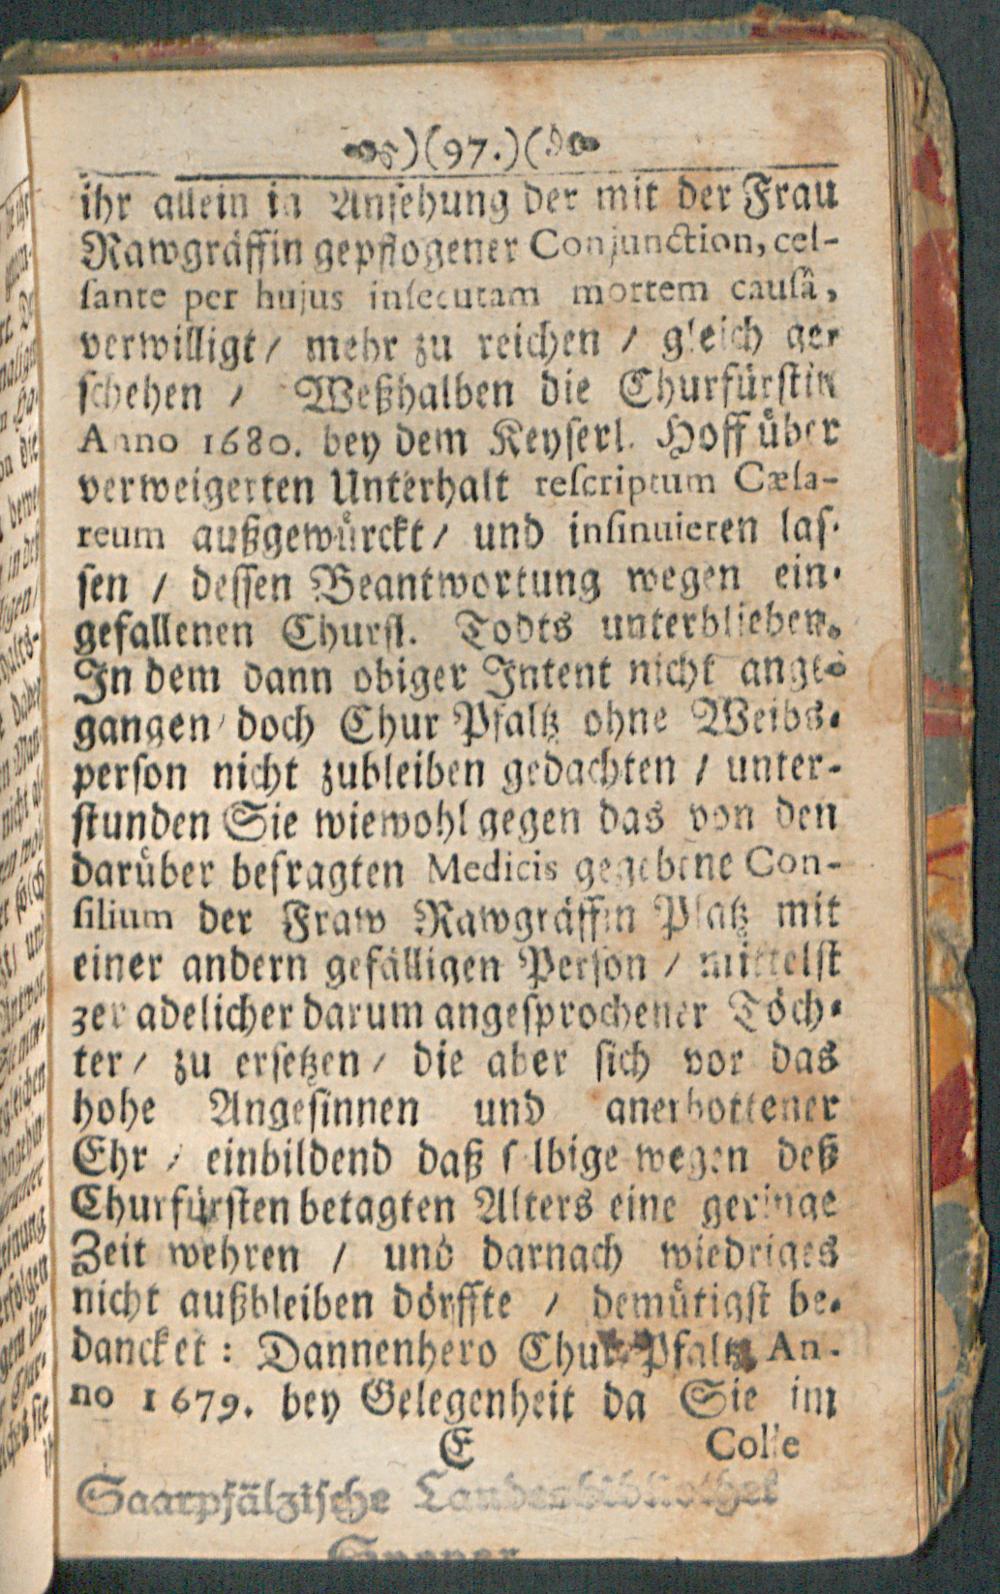 )(97.)(
ihr allein in Ansehung der mit der Frau
Rawgräffin gepflogener Conjunction, cel-
sante per hujus insecutam mortem causâ,
verwilligt / mehr zu reichen / gleich ge-
schehen / Weßhalben die Churfürstin
Anno 1680. bey dem Keyserl. Hoff über
verweigerten Unterhalt rescriptum Cæsa-
reum außgewürckt / und insinuieren las-
sen / dessen Beantwortung wegen ein-
gefallenen Churfl. Todts unterblieben.
In dem dann obiger Intent nicht ange-
gangen / doch Chur Pfaltz ohne Weibs-
person nicht zubleiben gedachten / unter-
stunden Sie wiewohl gegen das von den
darüber befragten Medicis gegebene Con-
silium der Fraw Rawgräffin Platz mit
einer andern gefälligen Person / mittelst
zer adelicher darum angesprochener Töch-
ter / zu ersetzen / die aber sich vor das
hohe Angesinnen und anerbottener
Ehr / einbildend daß selbige wegen deß
Churfürsten betagten Alters eine geringe
Zeit wehren / und darnach wiedriges
nicht außbleiben dörffte / demütigst be-
dancket: Dannenhero Chur-Pfaltz An-
no 1679. bey Gelegenheit da Sie im
E Colle
Saarpfälzische Landesbibliothek